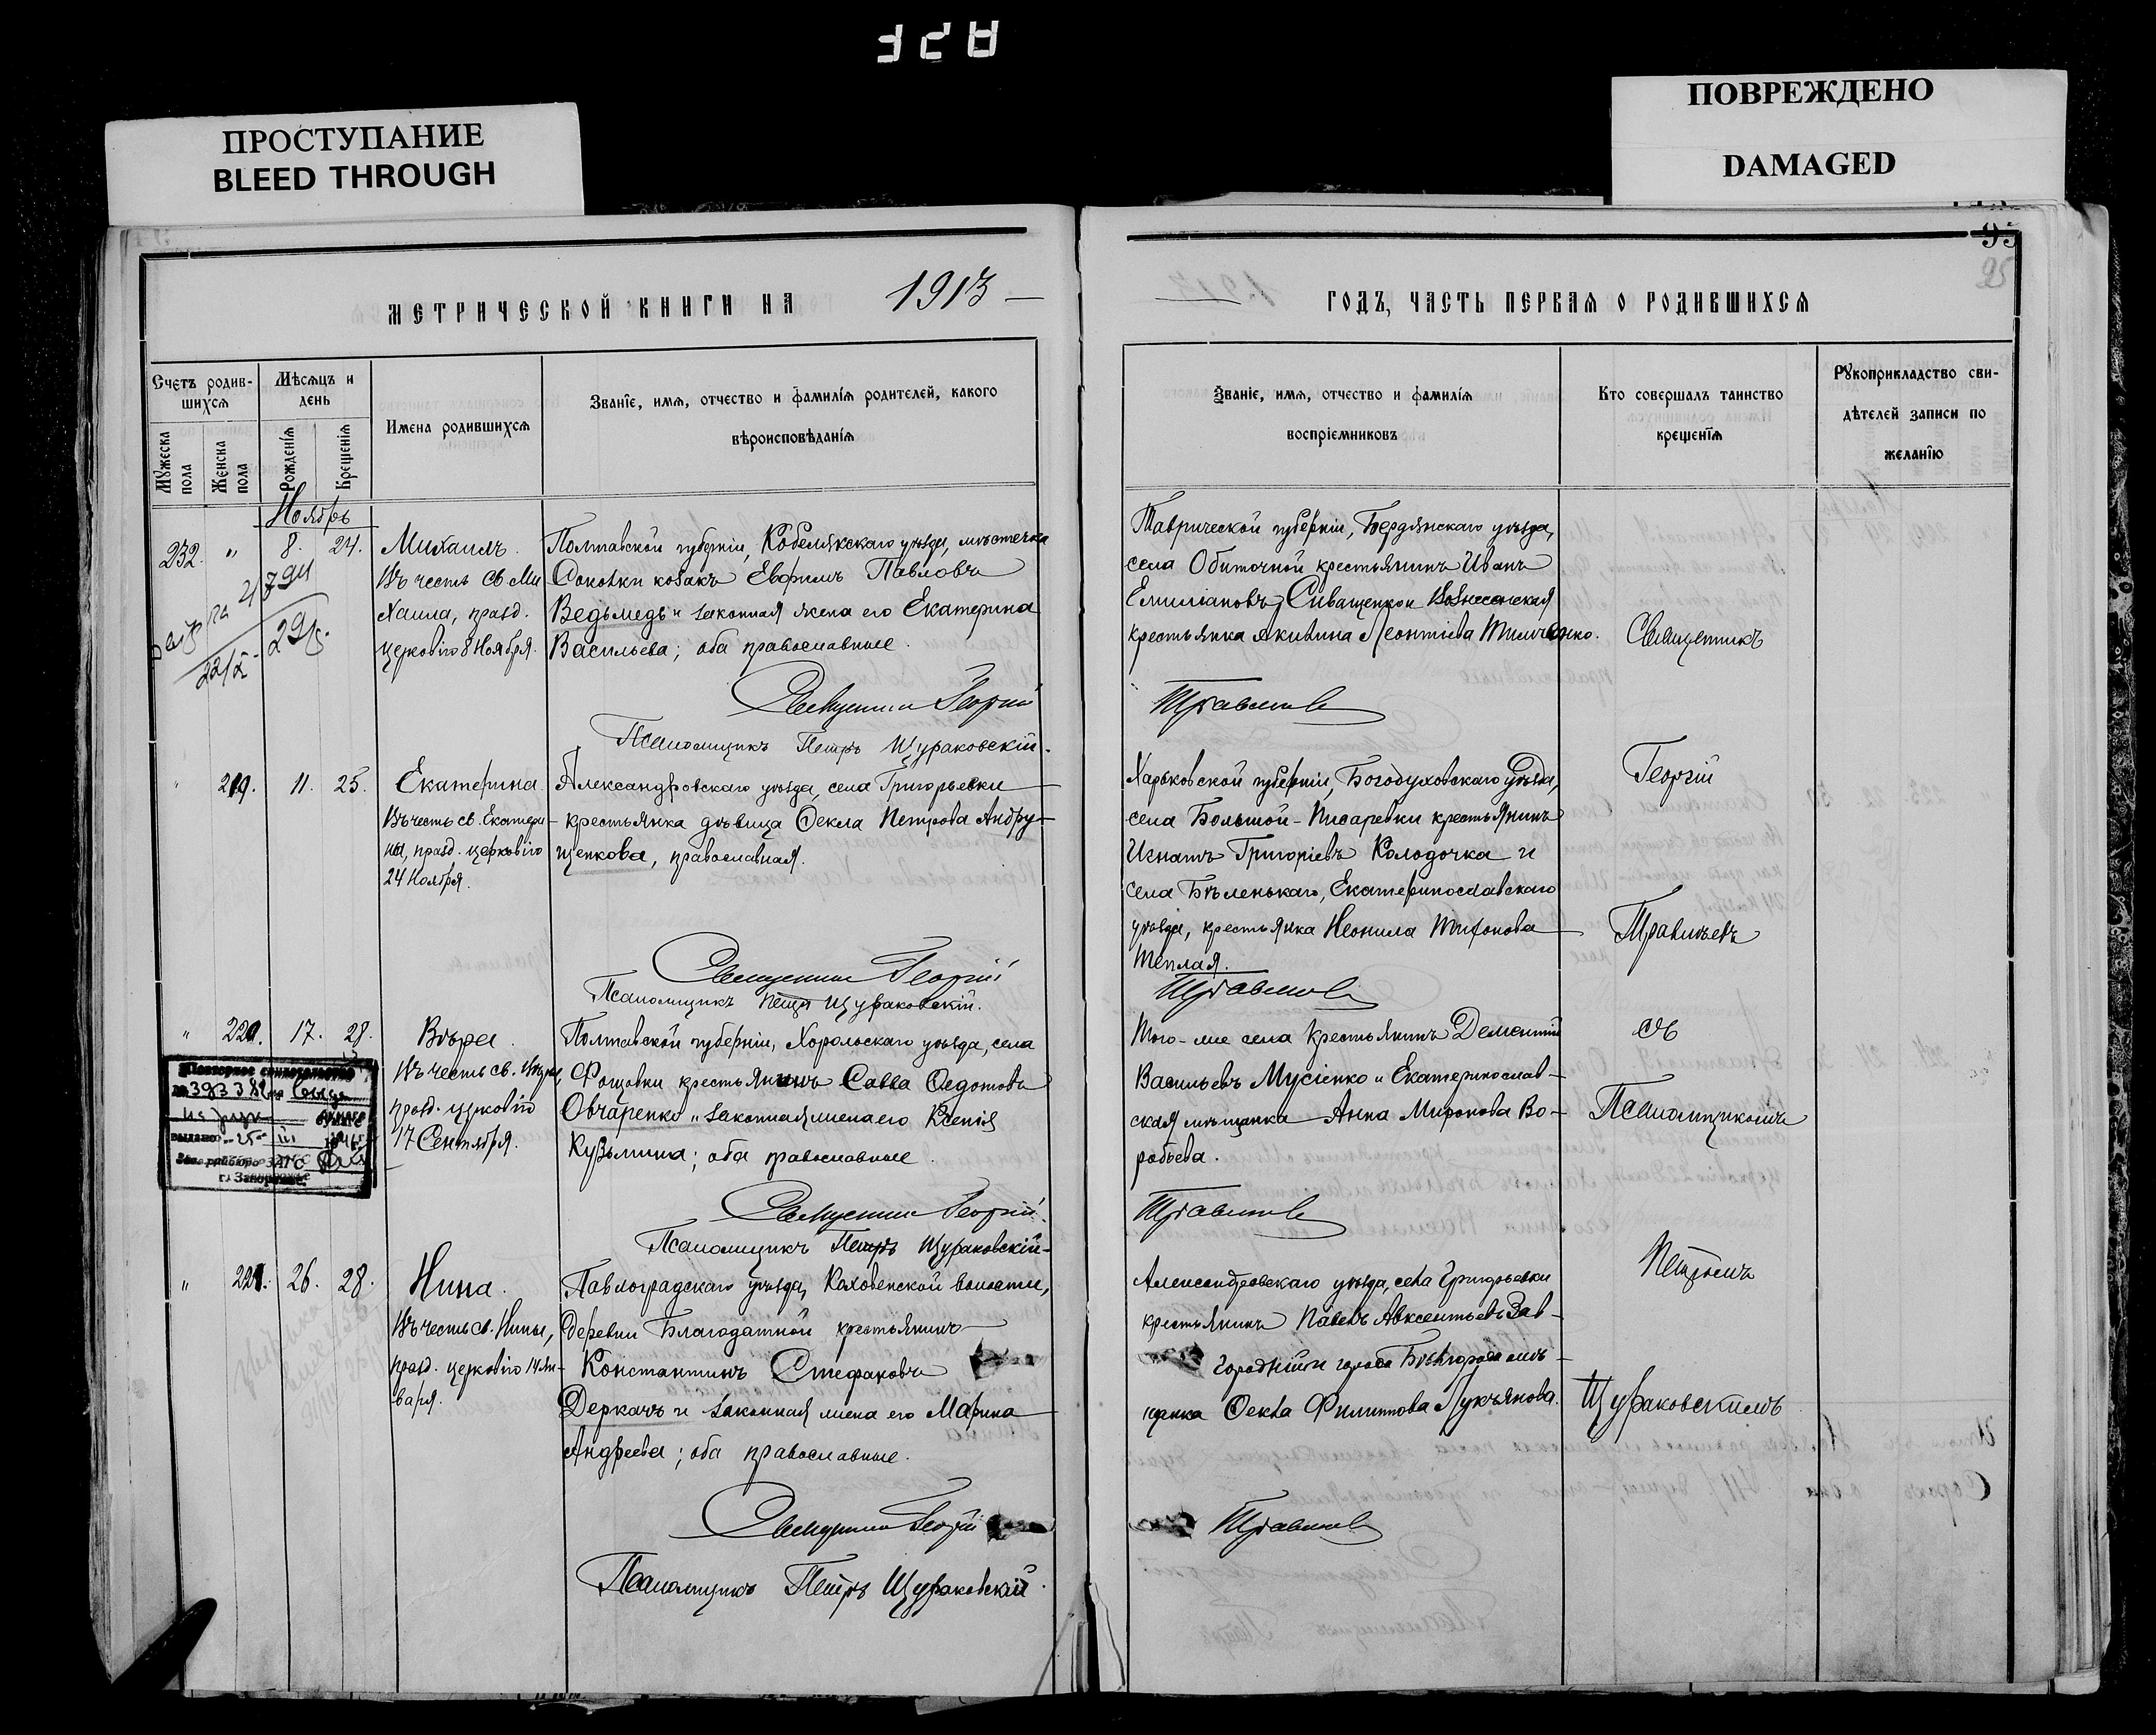 ПРОСТУПАНИЕ
BLEED THROUGH
ПОВРЕЖДЕНО
DAMAGED
95
95
МЕТРИЧЕСКОЙ КНИГИ НА 1913
Счетъ родив-
шихся
Мѣсяцъ и
день
Мужеска
пола
Женска
пола
Рожденія
Крещенія
Имена родившихся
Званіе, имя, отчество и фамилія родителей, какого
вѣроисповѣданія
Ноябрь
232. " 8. 24. Михаилъ.
Въ честь св. Ми
хаила, празд.
церковію 8 Ноября.
Полтавской губерніи, Кобелякскаго уѣзда, мѣстечка
Соколки козакъ Евфимъ Павловъ
Ведьмедь и законная жена его Екатерина
Васильева; оба православные.
Священникъ Георгій
Псаломщикъ Петръ Щураковскій.
" 219. 11. 25. Екатерина.
Въ честь св. Екатери-
ны, празд. церковію
24 Ноября.
Александровскаго уѣзда, села Григорьевки
крестьянка дѣвица Ѳекла Петрова Андру-
щенкова, православная.
Священникъ Георгій
Псаломщикъ Петръ Щураковскій.
" 220. 17. 28. Вѣра.
Въ честь св. Вѣры,
празд. церковію
17 Сентября.
Полтавской губерніи, Хорольскаго уѣзда, села
Фощовки крестьянинъ Савва Ѳедотовъ
Овчаренко и законная жена его Ксенія
Кузьмина; оба православные.
Повторное свидетельство
выдано
ЗАГС
Священникъ Георгій
Псаломщикъ Петръ Щураковскій.
" 221. 26. 28. Нина.
Въ честь св. Нины,
празд. церковію 14 Ян-
варя.
Павлоградскаго уѣзда, волости,
деревни Благодатной крестьянинъ
Константинъ Стефановъ
Деркачъ и законная жена его Марина
Андреева; оба православные.
Священникъ Георгій
Псаломщикъ Петръ Щураковскій.
ГОДЪ, ЧАСТЬ ПЕРВАЯ О РОДИВШИХСЯ
Званіе, имя, отчество и фамилія
воспріемниковъ
Кто совершалъ таинство
крещенія
Рукоприкладство сви-
дѣтелей записи по
желанію
Таврической губерніи, Бердянскаго уѣзда,
села Обиточной крестьянинъ Иванъ
Емиліановъ Сиващенко и Вознесенская
крестьянка Акилина Леонтіева Тимченко.
Травлѣевъ
Харьковской губерніи, Богодуховскаго уѣзда,
села Большой-Писаревки крестьянинъ
Игнатъ Григоріевъ Колодочка и
села Бѣленькаго, Екатеринославскаго
уѣзда, крестьянка Неонила Тихонова
Теплая.
Травлѣевъ
Того-же села крестьянинъ Дементій
Васильевъ Мусіенко и Екатеринослав-
ская мѣщанка Анна Миронова Во-
робьева.
Травлѣевъ
Александровскаго уѣзда, села Григорьевки
крестьянинъ Павелъ Авксентьевъ Зав-
городній и города Бѣлгорода мѣ-
щанка Ѳекла Филиппова Лукьянова.
Травлѣевъ
Священникъ
Георгій
Травлѣевъ
съ
Псаломщикомъ
Петромъ
Щураковскимъ